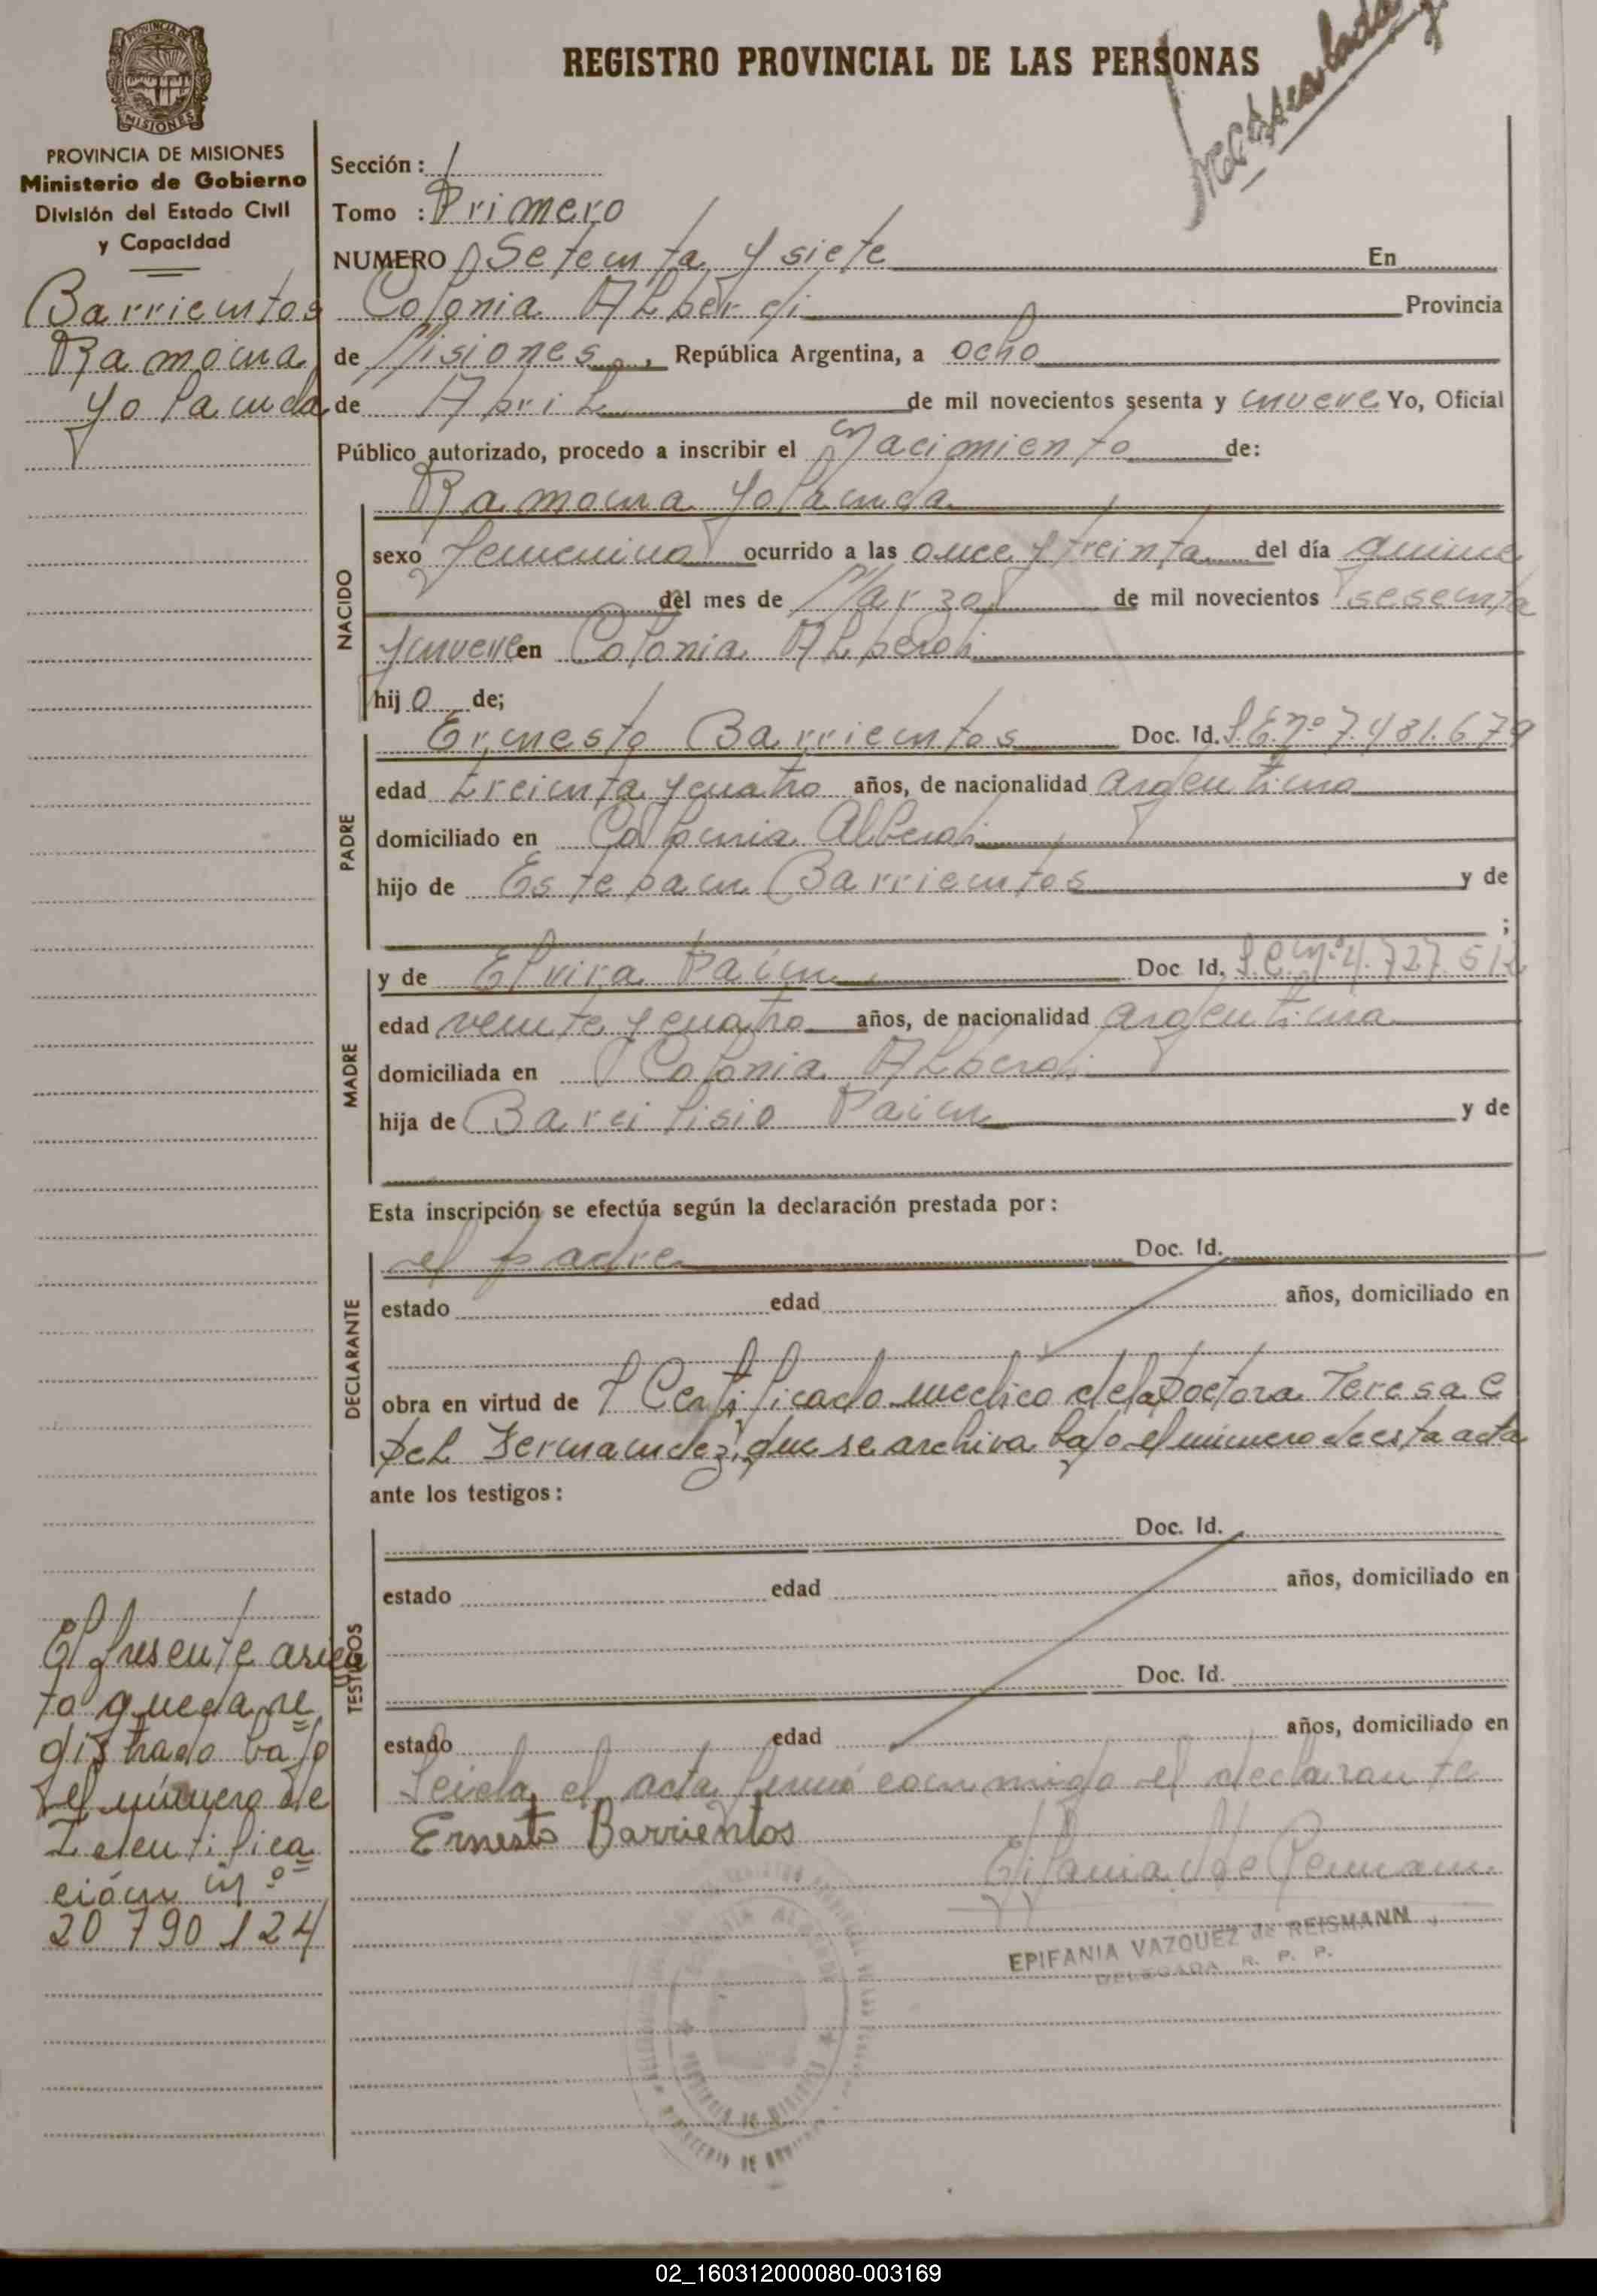 REGISTRO PROVINCIAL DE LAS PERSONAS
MISIONES
PROVINCIA DE MISIONES
Ministerio de Gobierno
División del Estado Civil
y Capacidad
Barrientos
Ramona
Yolanda
Sección :
Tomo : Primero
NUMERO Setenta y siete En
Colonia Alberdi Provincia
de Misiones, República Argentina, a ocho
de Abril de mil novecientos sesenta y nueve Yo, Oficial
Público autorizado, procedo a inscribir el Nacimiento de:
NACIDO
Ramona Yolanda
sexo femenino ocurrido a las once y treinta del día quince
del mes de Marzo de mil novecientos sesenta
y nueve en Colonia Alberdi
hij o de;
PADRE
Ernesto Barrientos Doc. Id. L.E. nº 7.481.679
edad treinta y cuatro años, de nacionalidad argentina
domiciliado en Colonia Alberdi
hijo de Esteban Barrientos y de
;
MADRE
y de Elvira Pain Doc Id. L.C. nº 4.727.512
edad veinte y cuatro años, de nacionalidad argentina
domiciliada en Colonia Alberdi
hija de Barcilisio Pain y de
Esta inscripción se efectúa según la declaración prestada por :
DECLARANTE
el padre Doc. Id.
estado edad años, domiciliado en
obra en virtud de Certificado medico de la Doctora Teresa C
del Fernandez, que se archiva bajo el número de esta acta
ante los testigos :
TESTIGOS
Doc. Id.
estado edad años, domiciliado en
Doc. Id.
estado edad años, domiciliado en
Leida el acta firmó conmigo el declarante
Ernesto Barrientos
EPIFANIA VAZQUEZ de REISMANN
DELEGADA R. P. P.
El presente asien
to queda re
gistrado bajo
el número de
Identifica
ción nº
20 790 124
02_160312000080-003169